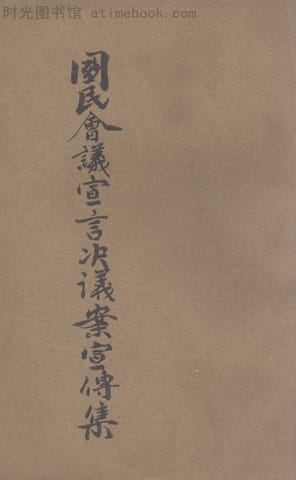 时光图书馆 - atimebook.com
國民會議宣言决議案宣傳集